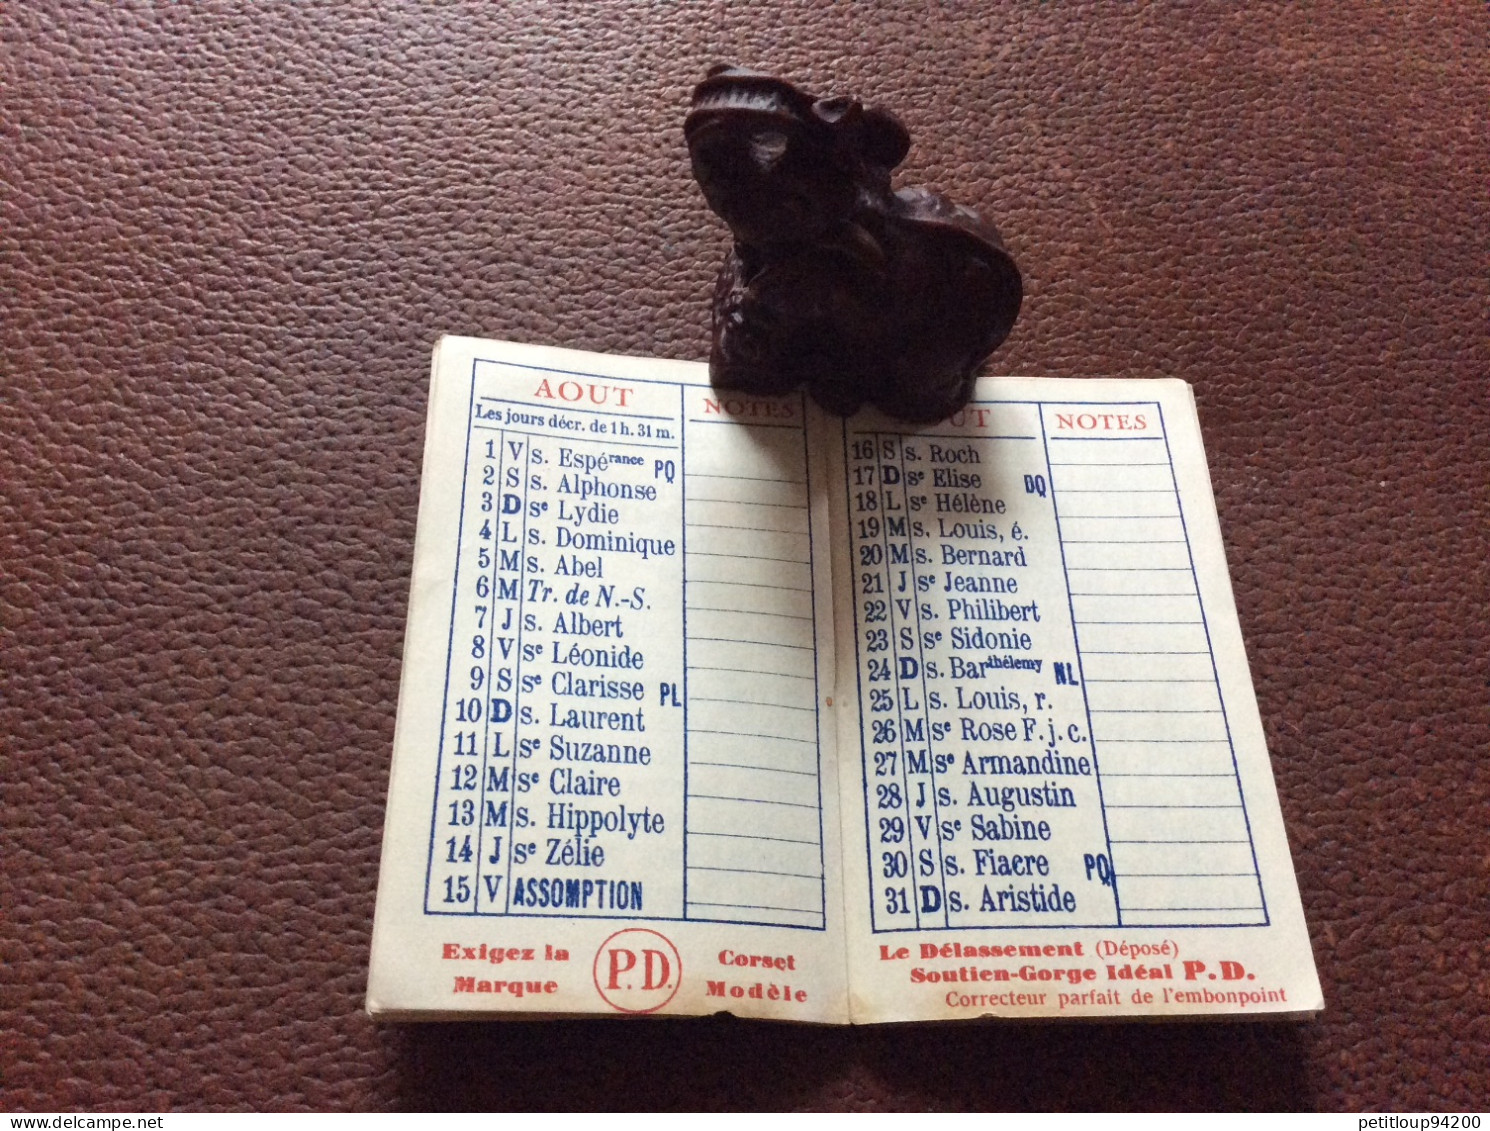 AOUT
NOTES
Les jours décr. de 1 h. 31 m.
1 V s. Espérance PQ
2 S s. Alphonse
3 D se Lydie
4 L s. Dominique
5 M s. Abel
6 M Tr. de N.-S.
7 J s. Albert
8 V se Léonide
9 S se Clarisse PL
10 D s. Laurent
11 L se Suzanne
12 M se Claire
13 M s. Hippolyte
14 J se Zélie
15 V ASSOMPTION
Exigez la
Marque
P.D.
Corset
Modèle
NOTES
16 S s. Roch
17 D se Elise DQ
18 L se Hélène
19 M s. Louis, é.
20 M s. Bernard
21 J se Jeanne
22 V s. Philibert
23 S se Sidonie
24 D s. Barthélemy NL
25 L s. Louis, r.
26 M se Rose F. j. c.
27 M se Armandine
28 J s. Augustin
29 V se Sabine
30 S s. Fiacre PQ
31 D s. Aristide
Le Délassement (Déposé)
Soutien-Gorge Idéal P.D.
Correcteur parfait de l'embonpoint
petitloup94200